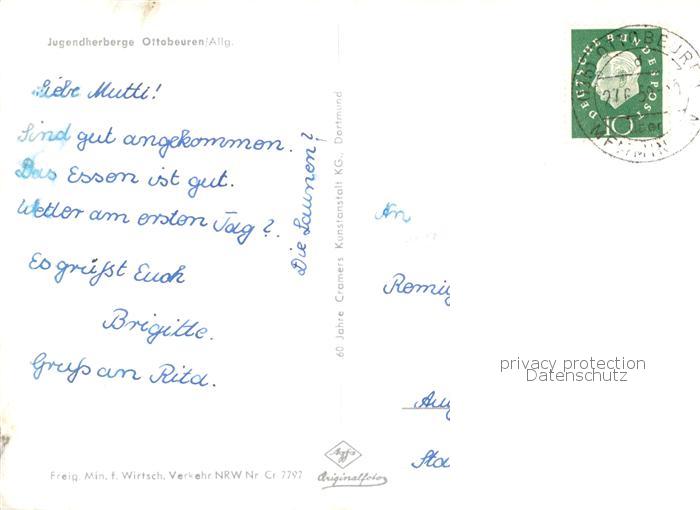 Jugendherberge Ottobeuren/Allg.
Liebe Mutti!
Sind gut angekommen.
Das Essen ist gut.
Wetter am ersten Tag?
Die Launen?
Es grüßst Euch
Brigitte.
Gruß an Rita.
Freig. Min. f. Wirtsch. Verkehr NRW Nr Cr 7797
60 Jahre Cramers Kunstanstalt KG., Dortmund
Agfa
Originalfoto
DEUTSCHE BUNDESPOST
10
OTTOBEUREN
MEMMIN
An
Romi
Aug
Sta
privacy protection
Datenschutz